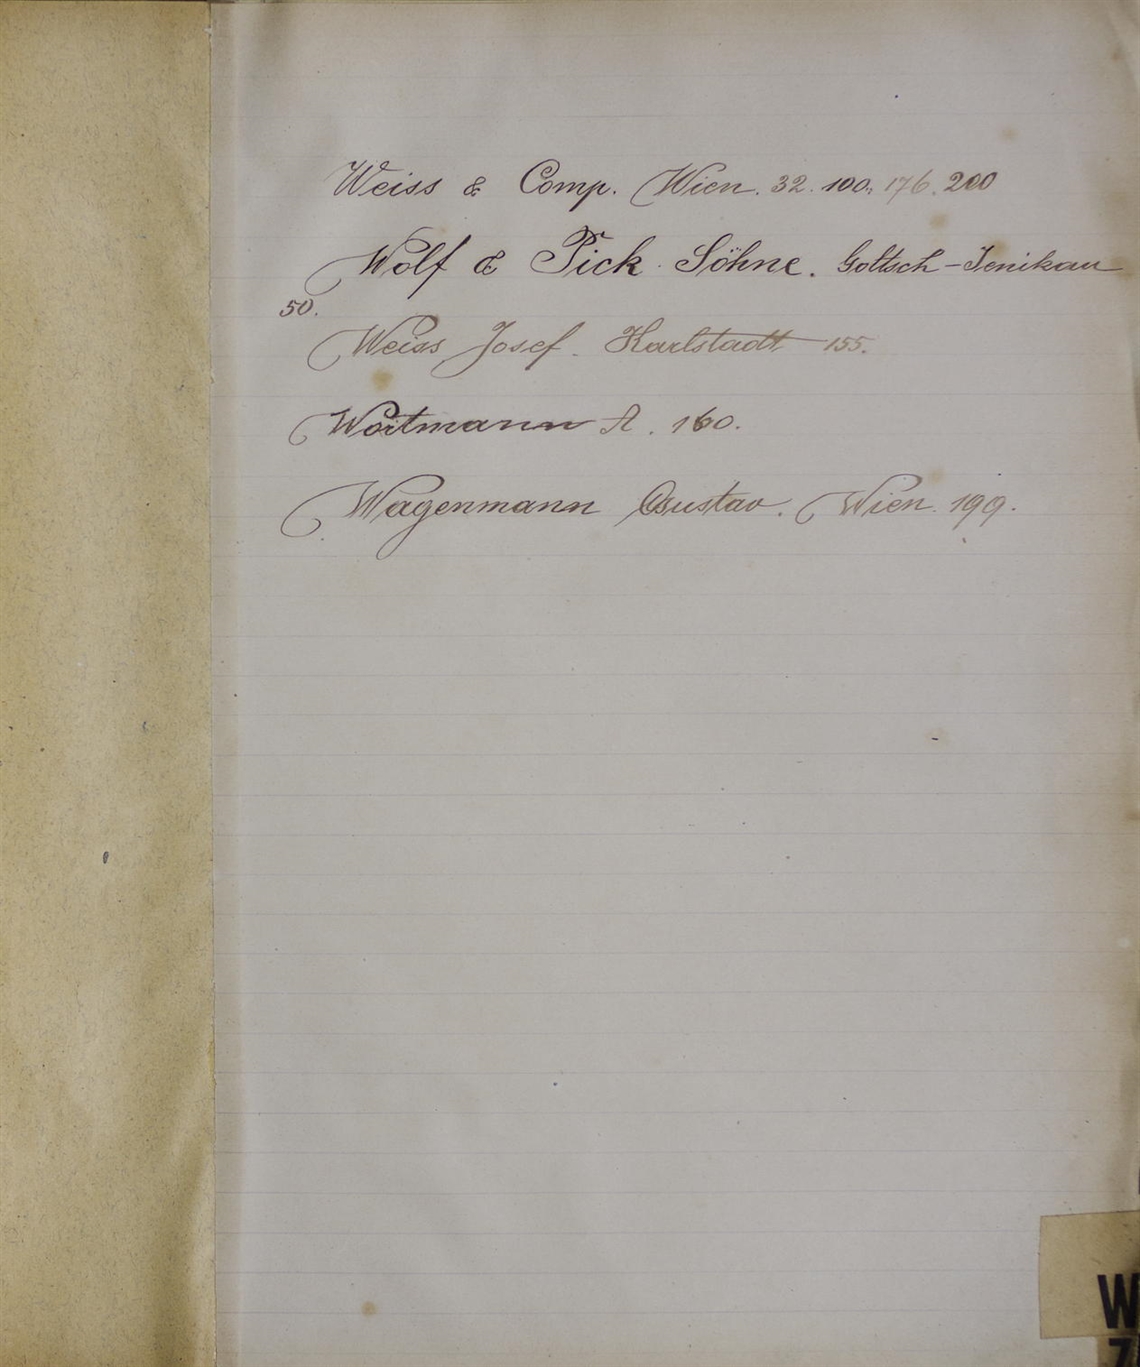 Weiss & Comp. Wien. 32. 100. 176. 200
Wolf & Pick Söhne. Goltsch-Jenikau
50.
Weiss Josef. Karlstadt 155.
Woitmann A. 160.
Wagenmann Gustav. Wien. 199.
W
Z